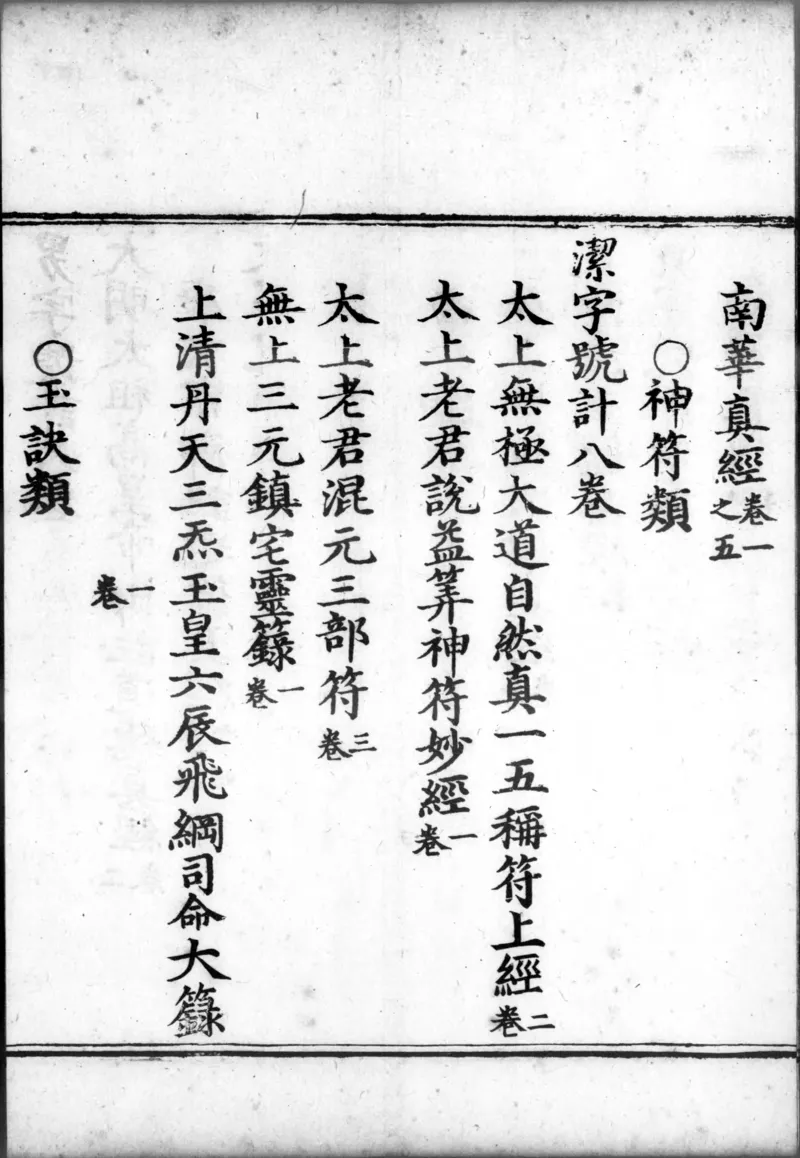 南華真經卷一之五
〇神符類
潔字號計八卷
太上無極大道自然真一五稱符上經二卷
太上老君說益筭神符妙經一卷
太上老君混元三部符三卷
無上三元鎮宅靈籙一卷
上清丹天三炁玉皇六辰飛綱司命大籙
一卷
〇玉訣類